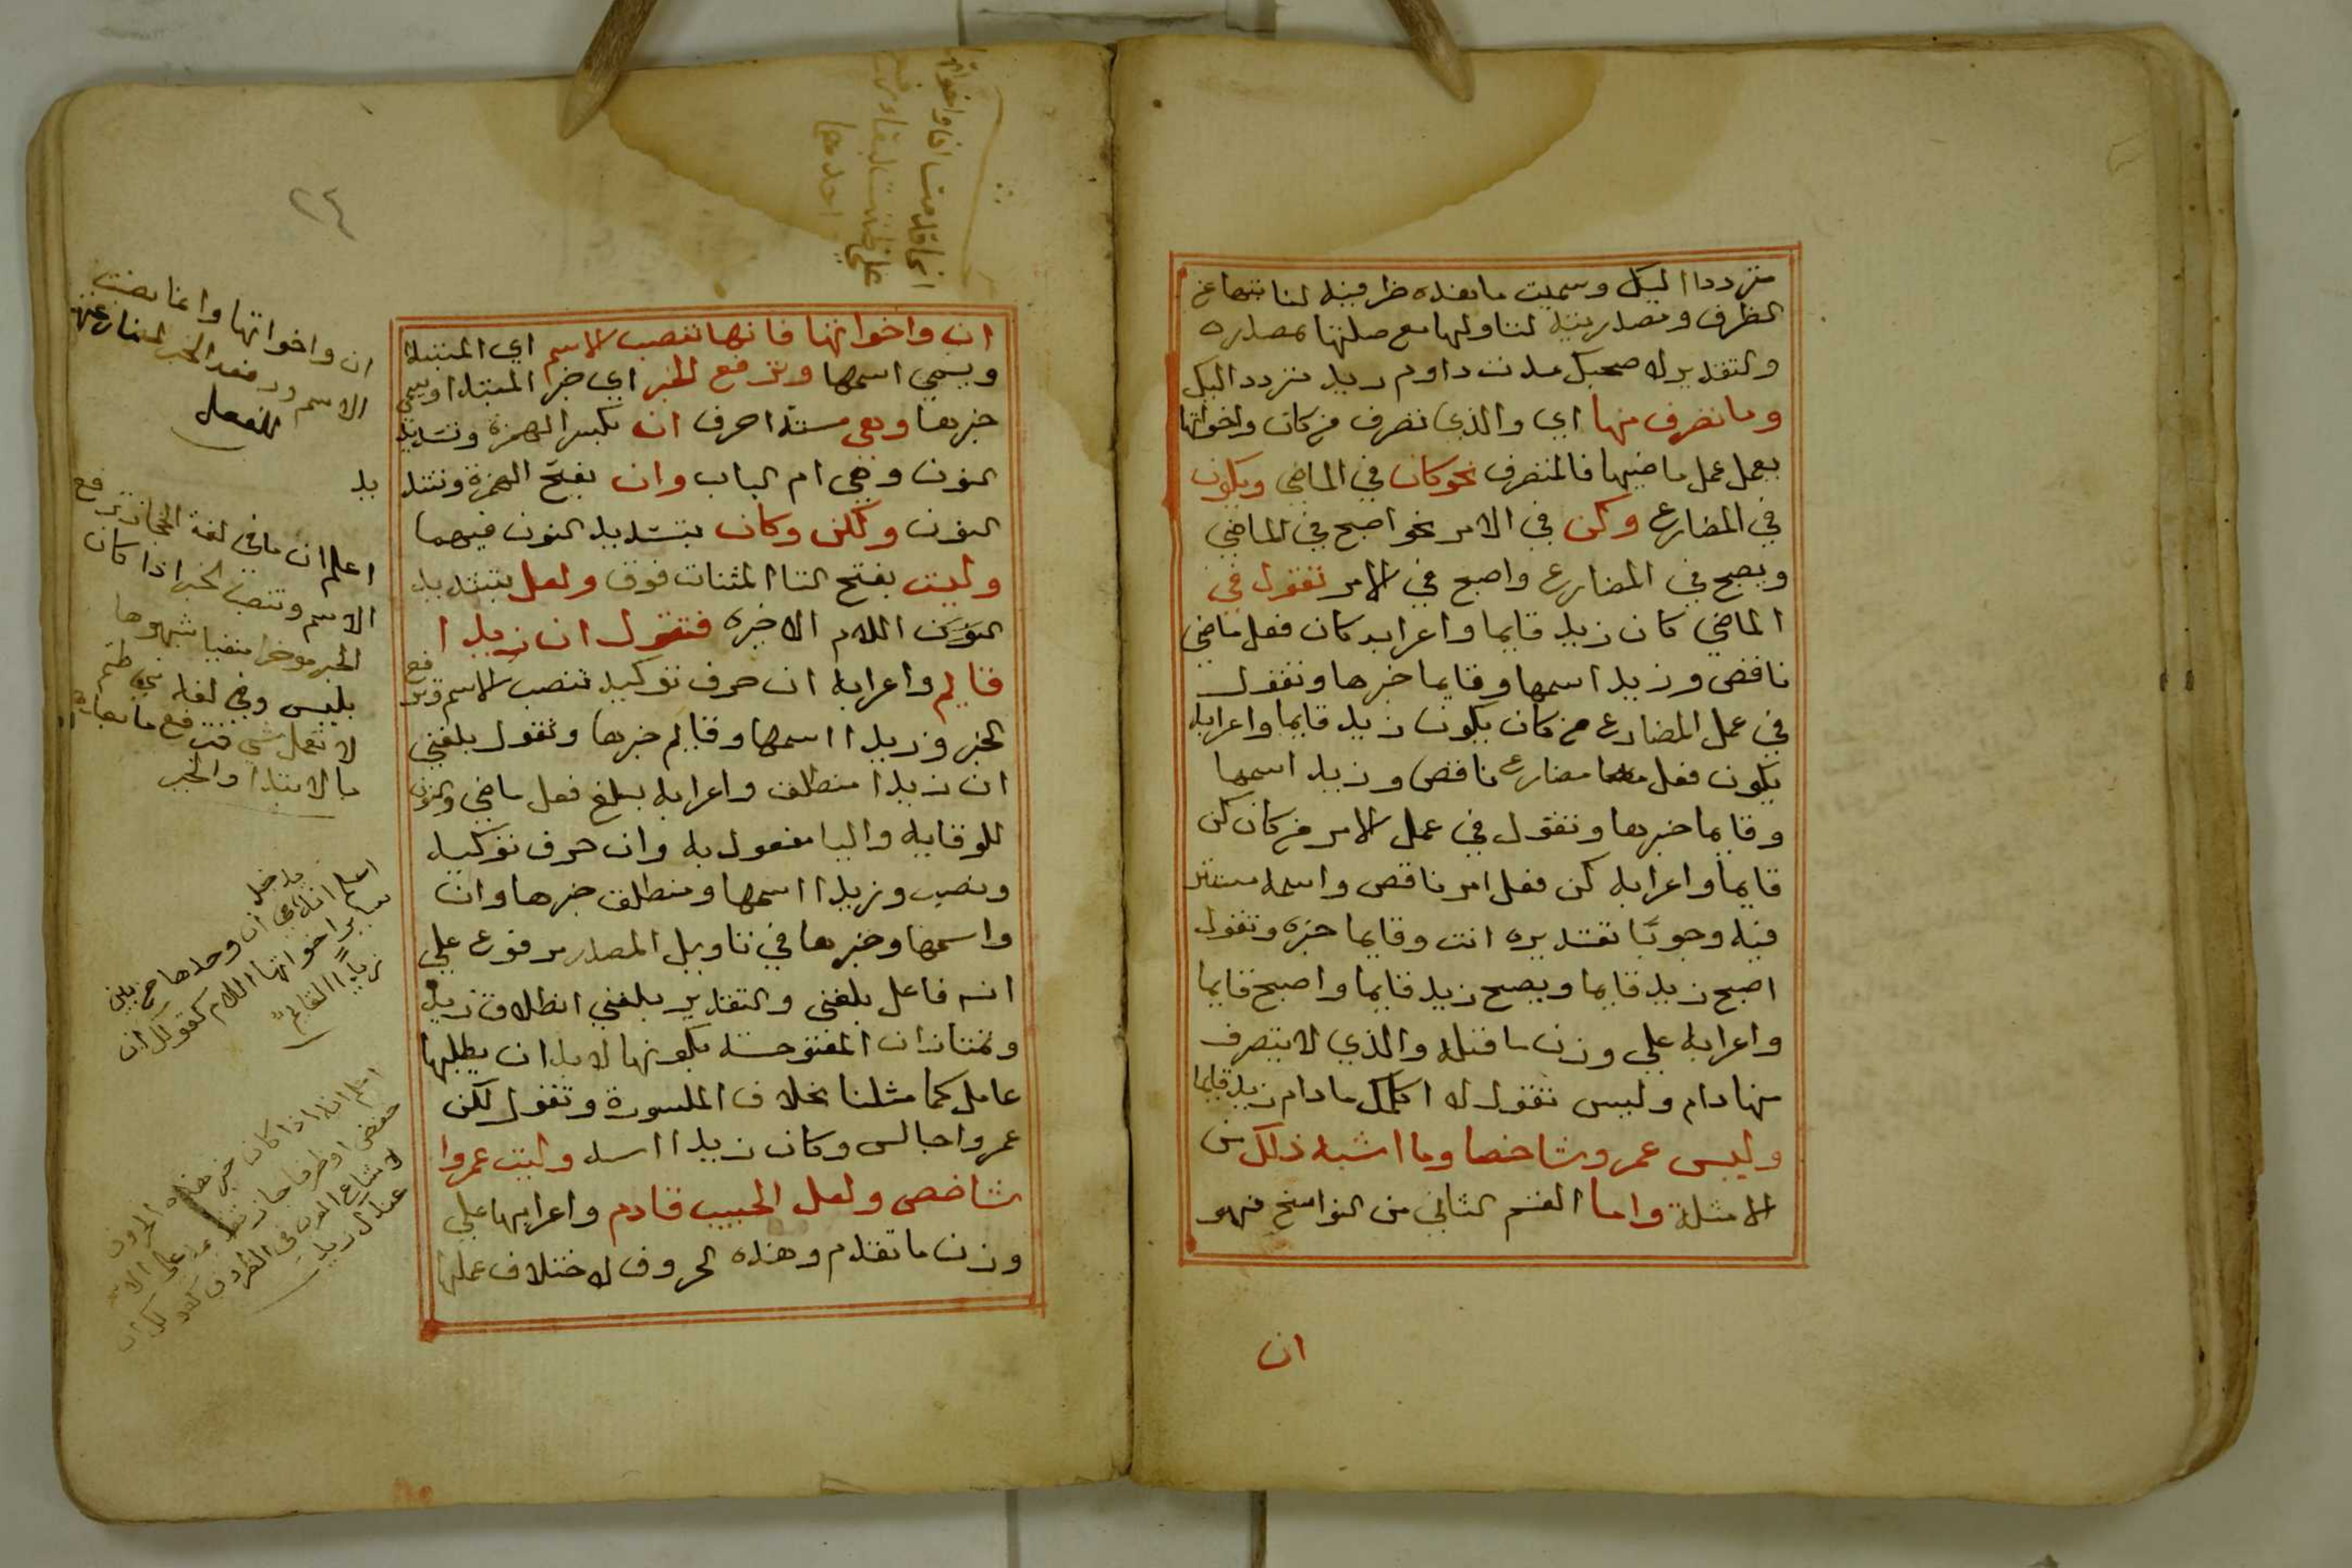 متردد اليك وسميت ما هذه ظرفية لنيابتها عن
الظرف ومصدرية لتاولها مع صلتها بمصدره
والتقدير لا صحبك مدت دوام زيد متردد اليك
وما تصرف منها اي والذي تصرف من كان واخواتها
يعمل عمل ماضيها فالمتصرف نحو كان في الماضي ويكون
في المضارع وكن في الامر نحو اصبح في الماضي
ويصبح في المضارع واصبح في الامر تقول في
الماضي كان زيد قايما واعرابه كان فعل ماضي
ناقص وزيد اسمها وقايما خبرها وتقول
في عمل المضارع من كان يكون زيد قايما واعرابه
يكون فعل مضارع ناقص وزيد اسمها
وقايما خبرها وتقول في عمل الامر من كان كن
قايما واعرابه كن فعل امر ناقص واسمه مستتر
فيه وجوبا تقديره انت وقايما خبره وتقول
اصبح زيد قايما ويصبح زيد قايما واصبح قايما
واعرابه علي وزن ما قبله والذي لا يتصرف
منها دام وليس تقول لا اكلمك ما دام زيد قايما
وليس عمرو شاخصا وما اشبه ذلك من
الامثلة واما القسم الثاني من النواسخ فهو
ان
٢٤
ان واخواتها فانها تنصب الاسم اي المبتدا
ويسمي اسمها وترفع الخبر اي خبر المبتدا ويسمي
خبرها وهي ستة احرف ان بكسر الهمزة وتشديد
النون وهي ام الباب وان بفتح الهمزة وتشد
النون ولكن وكان بتشديد النون فيهما
وليت بفتح التا المثنات فوق ولعل بتشديد
اللام الاخيره فتقول ان زيدا
قايم واعرابه ان حرف توكيد تنصب الاسم وترفع
الخبر وزيدا اسمها وقايم خبرها وتقول بلغني
ان زيدا منطلق واعرابه بلغ فعل ماضي والنون
للوقايه واليا مفعول به وان حرف توكيد
ونصب وزيدا اسمها ومنطلق خبرها وان
واسمها وخبرها في تاويل المصدر مرفوع علي
انه فاعل بلغني والتقدير بلغني انطلاق زيد
وتمتاز ان المفتوحة بكونها لا بد ان يطلبها
عامل كما مثلنا بخلاف المكسورة وتقول لكن
عمروا جالس وكان زيدا اسد وليت عمروا
شاخص ولعل الحبيب قادم واعرابها علي
وزن ما تقدم وهذه الحروف لاختلاف عملها
ان واخواتها وانما نصبت
الاسم ورفعت الخبر
للفعل
اعلم ان ما في لغة الحجاز ترفع
الاسم وتنصب الخبر اذا كان
الخبر موخرا منفيا شبهوها
بليس وفي لغة بني تميم
لا تعمل شي فترفع ما بعدها
بالابتدا والخبر
اعلم انه يدخل ان وحدها من بين
ساير اخواتها اللام كقولك ان
زيدا لقايم
اعلم انه اذا كان خبر هذه الحروف